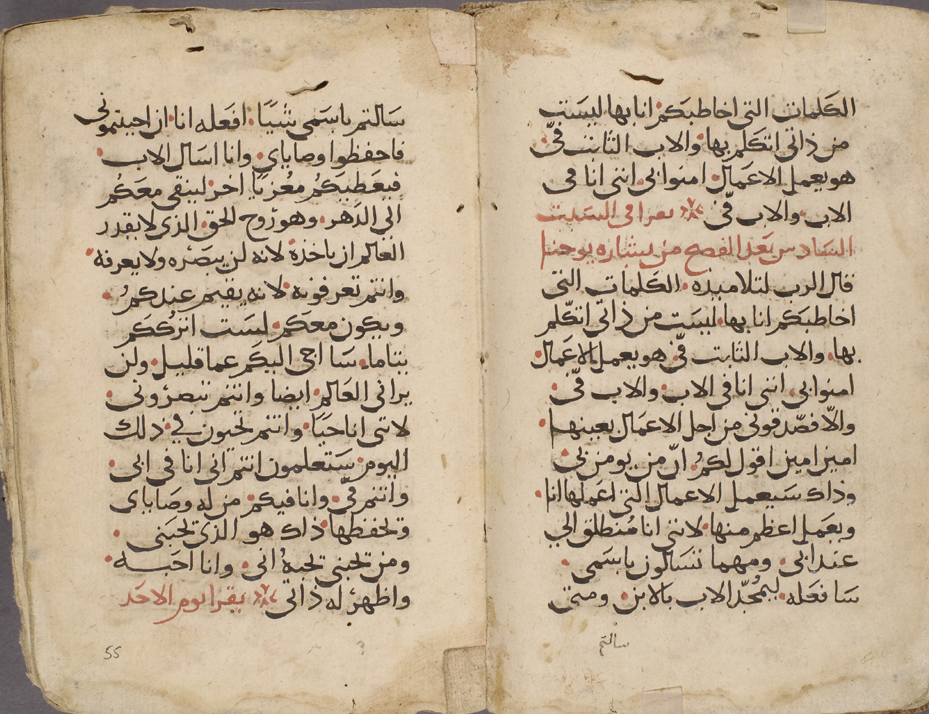 الكلمات التى اخاطبكم انا بها ليست
من ذاتى اتكلم بها والاب الثابت فىّ
هو يعمل الاعمال امنوا بى اننى انا فى
الاب والاب فىّ يقرا فى السبت
السادس بعد الفصح من بشاره يوحنا
قال الرب لتلاميذه الكلمات التى
اخاطبكم انا بها ليست من ذاتى اتكلم
بها والاب الثابت فىّ هو يعمل الاعمال
امنوا بى اننى انا فى الاب والاب فىّ
والا فصدقونى من اجل الاعمال بعينها
امين امين اقول لكم ان من يومن بى
وذاك سيعمل الاعمال التى اعملها انا
ويعمل اعظم منها لاننى انا منطلق الى
عند ابى ومهما تسالون باسمى
سافعله ليمجد الاب بالابن ومتى
سالتم
سالتم باسمى شيا افعله انا ان احببتمونى
فاحفظوا وصاياى وانا اسال الاب
فيعطيكم معزيا اخر ليبقى معكم
الى الدهر وهو روح الحق الذى لا يقدر
العالم ان ياخذه لانه لن يبصره ولا يعرفه
وانتم تعرفونه لانه يقيم عندكم
ويكون معكم ليست اترككم
يتاما سااجى اليكم عما قليل ولن
يرانى العالم ايضا وانتم تبصرونى
لاننى انا حيا وانتم تحيون فى ذلك
اليوم ستعلمون انتم انى انا فى ابى
وانتم فىّ وانا فيكم من له وصاياى
وتحفظها ذاك هو الذى تحبنى
ومن تحبنى تحبه ابى وانا احبه
واظهر له ذاتى يقرا يوم الاحد
55